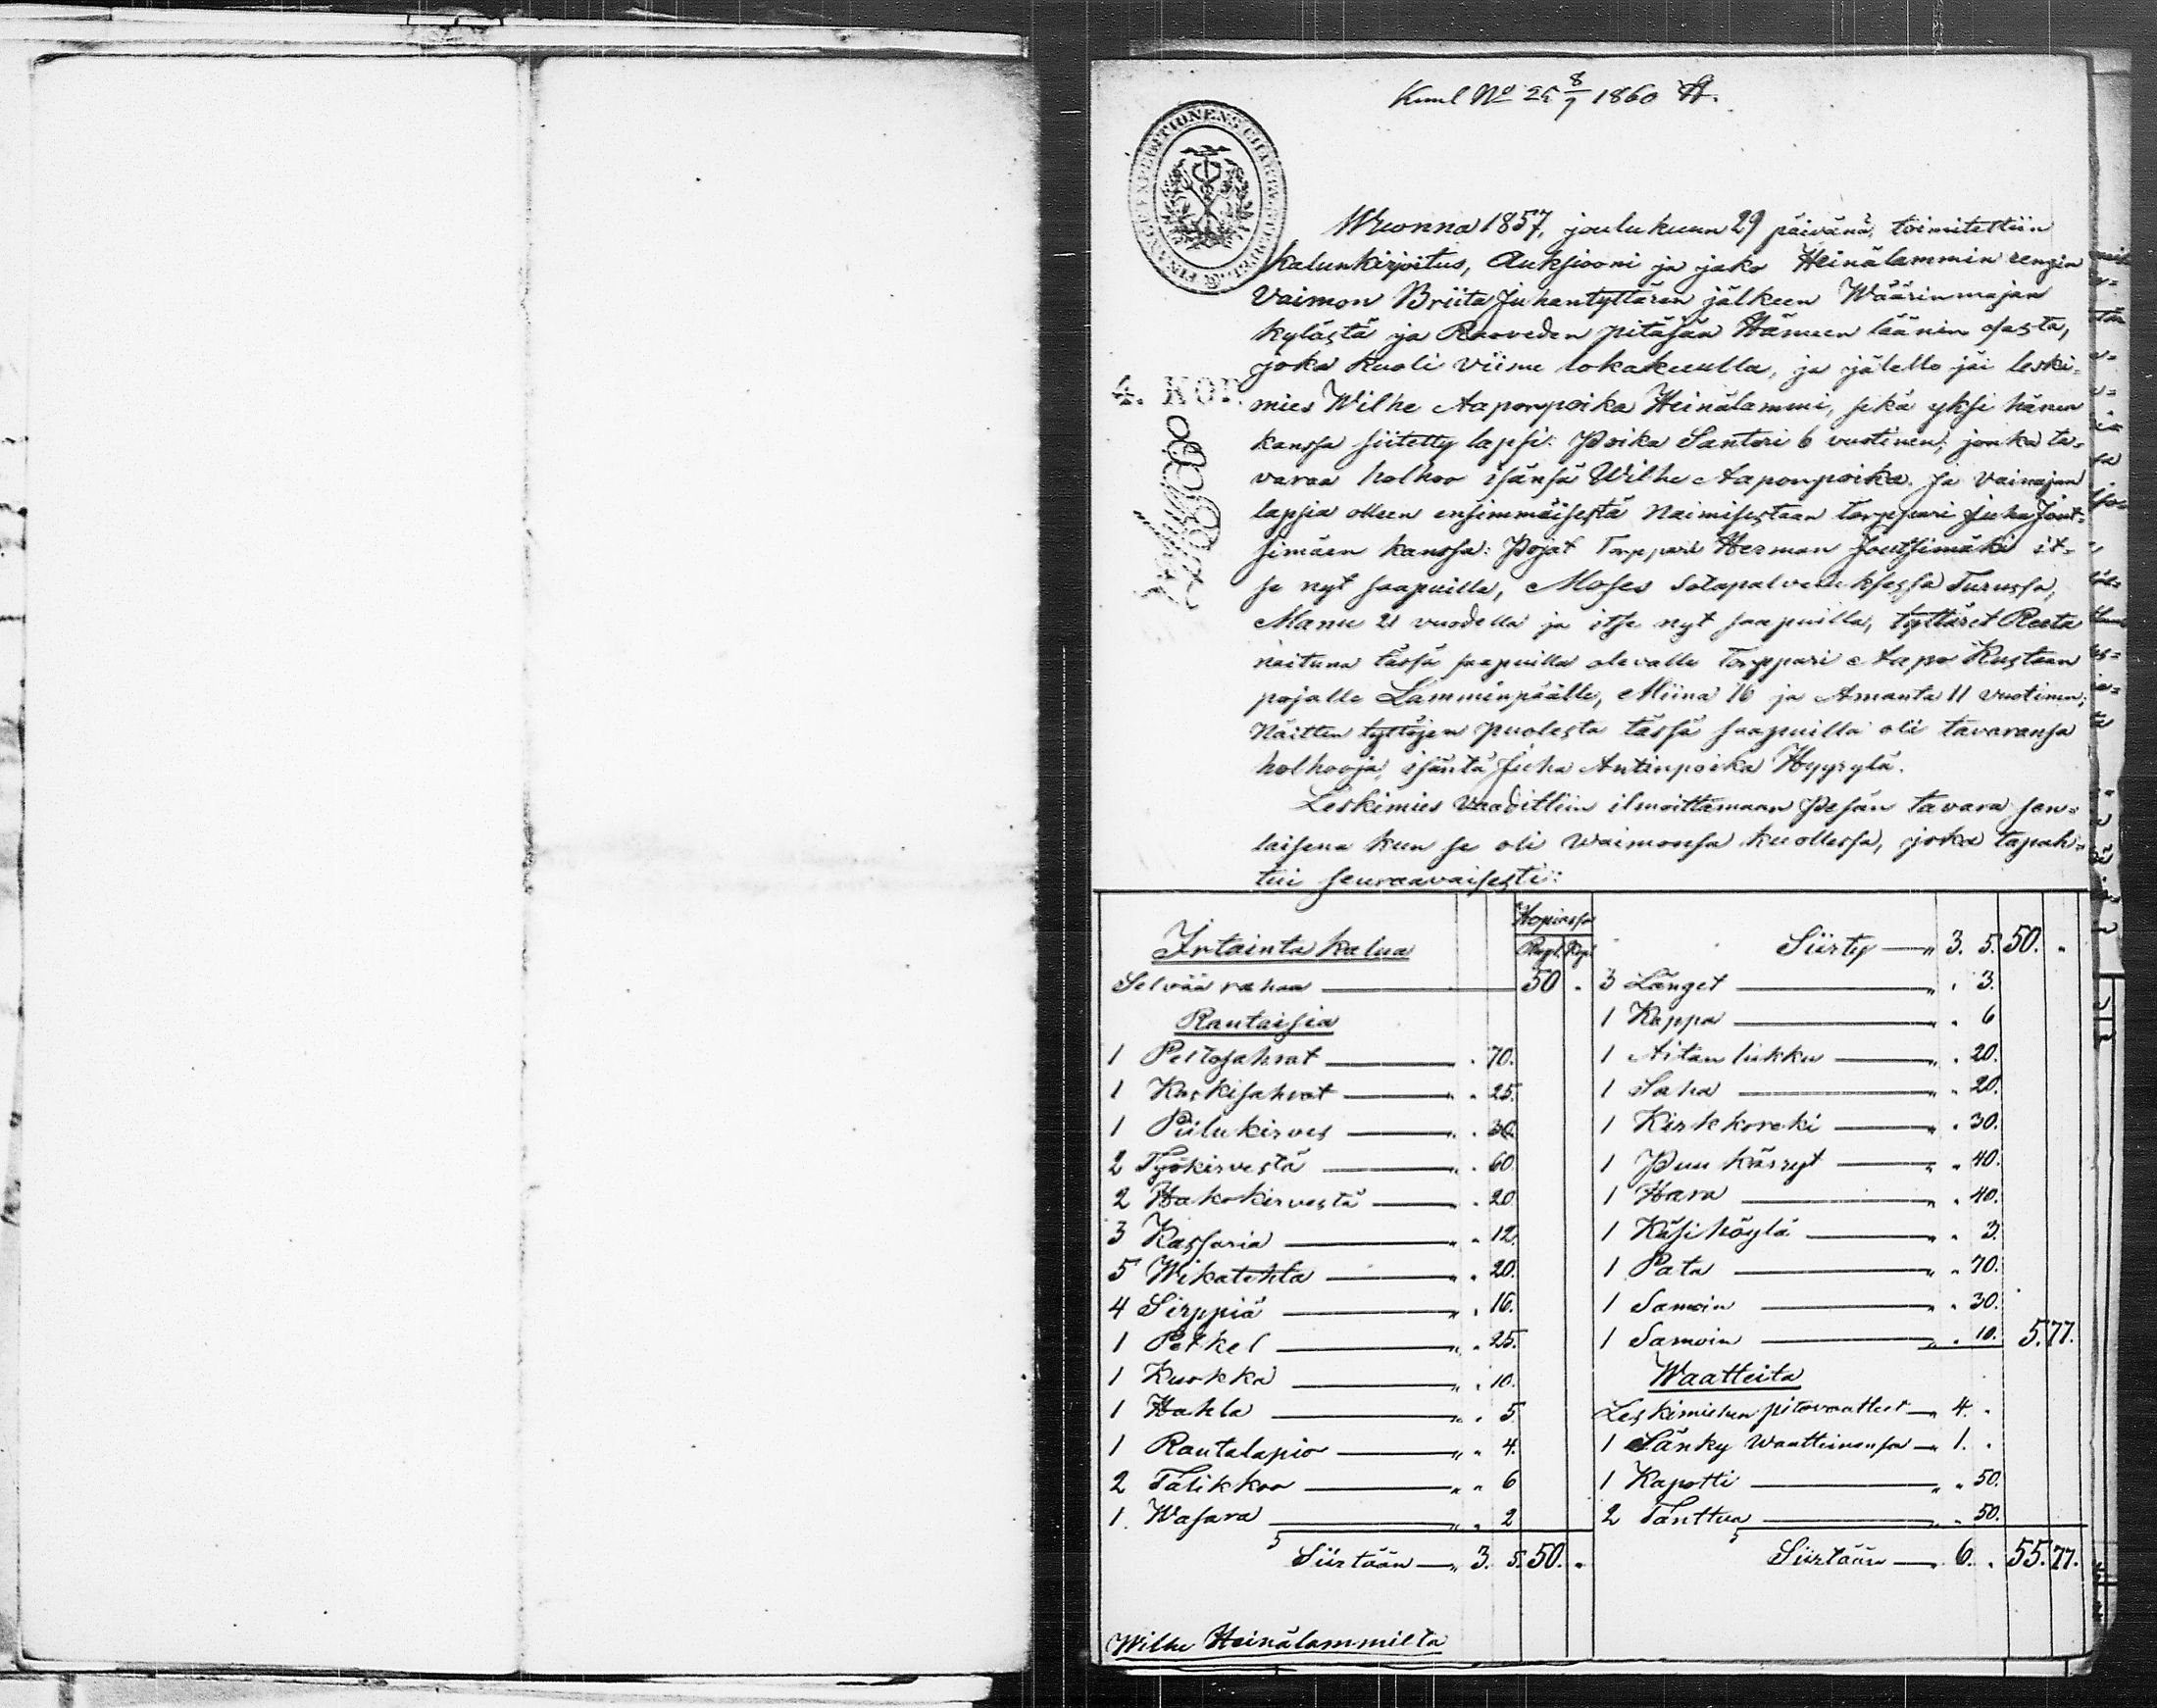 Kuul No 25 8/7 1860
FINANCE EXPEDITIONENS CHARTÆ
4. KOP.
Wuonna 1857, joulukuun 29 päivänä, toimitettiin
kalunkirjoitus, Auksiooni ja jako Heinälammin rengin
Vaimon Briita Juhantyttären jälkeen Väärinmajan
kylästä ja Ruoveden pitäjän Hämeen läänin osasta,
joka kuoli viime lokakuulla, ja jälelle jäi leski-
mies Wilhe Aaponpoika Heinälammi, sekä yksi hänen
kanssa siitetty lapsi: Poika Santeri 6 vuotinen, jonka ta-
varaa holhoo isänsä Wilhe Aaponpoika. Ja vainajan
lapsia olleen ensimmäisestä Naimisestaan torppari Juha Jout-
simäen kanssa: Pojat Torppari Herman Joutsimäki it-
se nyt saapuilla, Moses Sotapalveluksessa Turussa,
Manu 21 vuodella ja itse nyt saapuilla, tyttäret Reeta
naituna tässä saapuilla olevalle Torppari Aapo Kustaan
pojalle Lamminpäälle, Miina 16 ja Amanta 11 vuotinen;
Näitten tyttöjen puolesta tässä saapuilla oli tavaransa
holhooja, isäntä Juha Antinpoika Hyyrylä.
Leskimies vaadittiin ilmoittamaan Pesän tavara sen-
laisena kun se oli Waimonsa kuollessa, joka tapah-
tui seuraavaisesti:
Hopiassa
Irtainta kalua Rupl. Kop.
Selvää rahaa 50 "
Rautaisia
1 Peltosahrat " 70.
1 Kaskisahrat " " 25.
1 Piilukirves " " 30.
2 Työkirvestä " " 60
2 Hakokirvestä " 20
3 Kassaria " " 12.
5 Wikatehta " " 20.
4 Sirppiä " " 16.
1 Petkel " " 25.
1 Kuokka " " 10.
1 Hahla " " 5
1 Rautalapio " " 4.
2 Talikkoo " " 6
1 Wasara " " 2
Siirtään " 3. 5. 50. "
Siirty " 3. 5. 50. "
3 Länget " " 3.
1 Kappa " " 6
1 Aitan lukku " " 20.
1 Saha " " 20.
1 Kirkkoreki " " 30.
1 Puu kärryt " " 40.
1 Hara " " 40.
1 Käsihöylä " " 3.
1 Pata " " 70.
1 Samoin " " 30.
1 Samoin " " 10. 5. 77.
Waatteita
Leskimiehen pitovaatteet " 4. "
1 Sänky Waatteinensa " 1. "
1 Kapotti " " 50.
2 Tanttua " " 50.
Siirtään " 6. " 55. 77.
Wilhe Heinälammilta